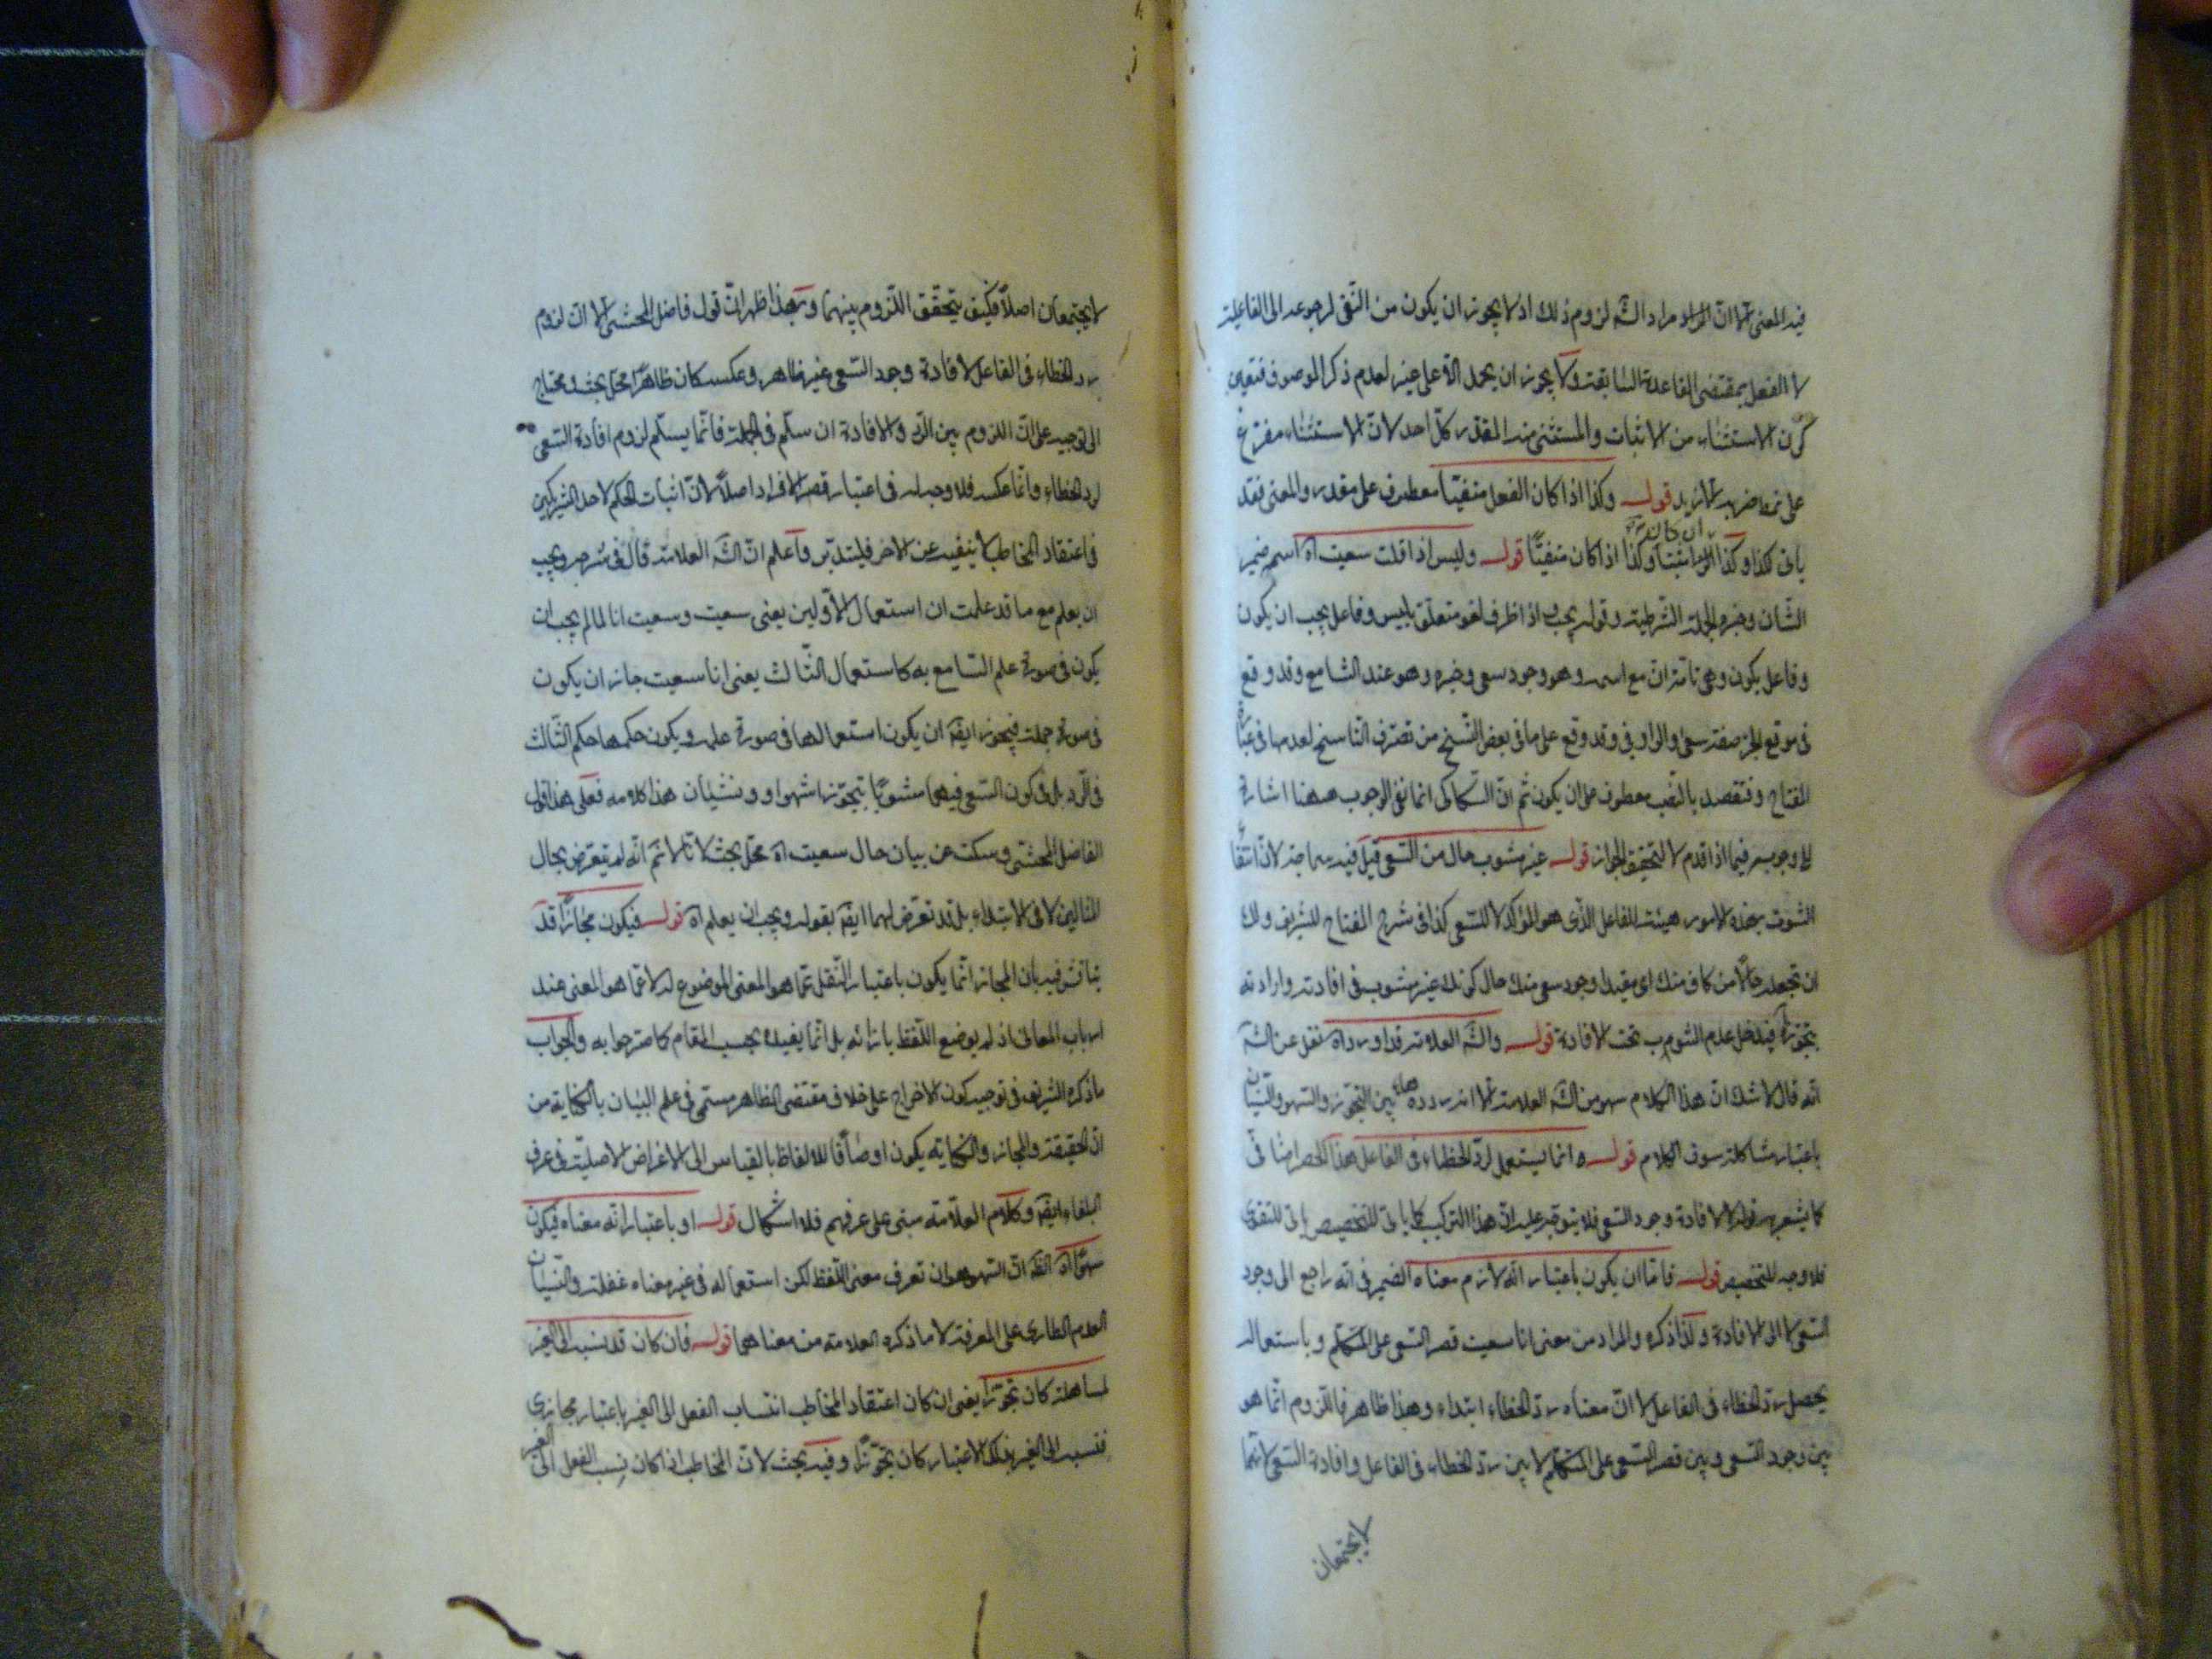 فيه المعنى الا ان المراد مراد الشه لزوم ذلك اذ لا يجوز ان يكون من النفى لرجوعه الى الفاعلية
لا الفعل بمقتضى القاعدة السابقة ولا يجوز ان يحمل الا على غير لعدم ذكر الموصوف فتعين
كون الاستثناء من الاثبات والمستثنى منه المقدر كل احد لان الاستثناء مفرغ
على نمط ضربه الا زيد قوله وكذا اذا كان الفعل منفيا معطوف على مقدر والمعنى فقد
ان كان
ياتى كذا وكذا وكذا اذا كان منفيّا قوله وليس اذا قلت سعيت اه اسم ضمير
الشان وخبره الجملة الشرطية وقوله يجب اذ اظرف لغو متعلق بليس وفاعل يجب ان يكون
وفاعل يكون وهى تامة ان مع اسمه وهو وجود سعى وخبره وهو عند السامع وقد وقع
فى موقع الجر صفة سعى والواو فى وقد وقع على ما فى بعض النسخ من تصرف الناسخ لعدمها فى عبارة
المفتاح وفتقصد بالنصب معطوف على ان يكون ثم ان السكاكى انما نفى الوجوب ههنا اشارة
الى وجوبه فيما اذا قدم لا لتحقيق الجواز قوله غير مشوب حال من السعى قيل فيه سماجة لان انتفاء
الشوب بهذه الامور هيئة للفاعل الذى هو المؤكد لا للسعى كذا فى شرح المفتاح للشريف ولك
ان تجعله حالا من كاف منك اى مقيد وجود سعى منك حال كونك غير مشوب فى افادته وارادته
بتجوز فيدخل عدم الشوب تحت الافادة قوله والشه العلامة قد اورداه نقل عن الشه
انه قال لا شك ان هذا الكلام سهو من الشه العلامة الا انه ردده ههنا بين التجوز والسهو والنسيان
باعتبار مشاكلة سوق الكلام قوله انما يستعمل لرد الخطاء فى الفاعل هذا الحصر اضافى
كما يشعر به قوله لا لافادة وجود السعى فلا يتوجه عليه ان هذا التركيب كما ياتى للتخصيص ياتى للتقوى
فلا وجه للتخصيص قوله فاما ان يكون باعتبار انه لازم معناه الضمير فى انه راجع الى وجود
السعى لا الى الافادة ولذا ذكره والمراد من معنى انا سعيت قصر السعى على المتكلم وباستعماله
يحصل رد الخطاء فى الفاعل لا ان معناه رد الخطاء ابتداء وهذا ظاهر فاللزوم انما هو
بين وجود السعى وبين قصر السعى على المتكلم لا بين رد الخطاء فى الفاعل وافادة السعى لانهما
لا يجتمعان
لا يجتمعان اصلا فكيف يتحقق اللزوم بينهما وبهذا ظهر ان قول فاضل المحشى الا ان لزوم
رد الخطاء فى الفاعل لافادة وجود السعى غير ظاهر وعكسه كان ظاهرا محل بحث ومحتاج
الى توجيه على ان اللزوم بين الرد والافادة ان سلم فى الجملة فانما يسلم لزوم افادة السعى
لرد الخطاء واما عكسه فلا وجه له فى اعتبار قصر الافراد اصلا لان اثبات الحكم لاحد الشريكين
فى اعتقاد المخاطب لا ينفيه عن الاخر فليتدبر واعلم ان الشه العلامة قال فى شرحه ويجب
ان يعلم مع ما قد علمت ان استعمال الاولين يعنى سعيت وسعيت انا لما لم يجب ان
يكون فى صورة علم السامع به كاستعمال الثالث يعنى انا سعيت جاز ان يكون
فى صورة جهله فيجوز ايضه ان يكون استعمالها فى صورة علمه ويكون حكمها حكم الثالث
فى الرد بل فى كون السعى فيهما مشوبا بتجوز اسهو او ونسيان هذا كلامه فعلى هذا قول
الفاضل المحشى وسكت عن بيان حال سعيت اه محل بحث لانا لانم انه لم يتعرض بحال
المثالين لا فى الابتداء بل قد تعرض لهما ايضه بقوله ويجب ان يعلم اه قوله فيكون مجازا قد
يناقش فيه بان المجاز انما يكون باعتبار النقل عما هو المعنى الموضوع له لا عما هو المعنى عند
ارباب المعانى اذ لم يوضع اللفظ بازائه بل انما يفيده بحسب المقام كما صرحوا به والجواب
ما ذكره الشريف فى توجيه كون الاخراج على خلاف مقتضى الظاهر مسمى فى علم البيان بالكناية من
ان الحقيقة والمجاز والكناية يكون اوصافا للالفاظ بالقياس الى الاغراض الاصلية فى عرف
البلغاء ايضه وكلام العلامة مبنى على عرفهم فلا اشكال قوله او باعتبار انه معناه فيكون
سهوا اه الظه ان السهو هو ان تعرف معنى اللفظ لكن استعماله فى غير معناه غفلة والنسيان
العدم الطارى على المعرفة لا ما ذكره العلامة من معناهما قوله فان كان قد نسبه الى الغير
لمساهلة كان تجوزا يعنى ان كان اعتقاد المخاطب انتساب الفعل الى الغير باعتبار مجازى
فنسبه الى الغير بذلك الاعتبار كان تجوزا وفيه بحث لان المخاطب اذا كان نسب الفعل الى الغير